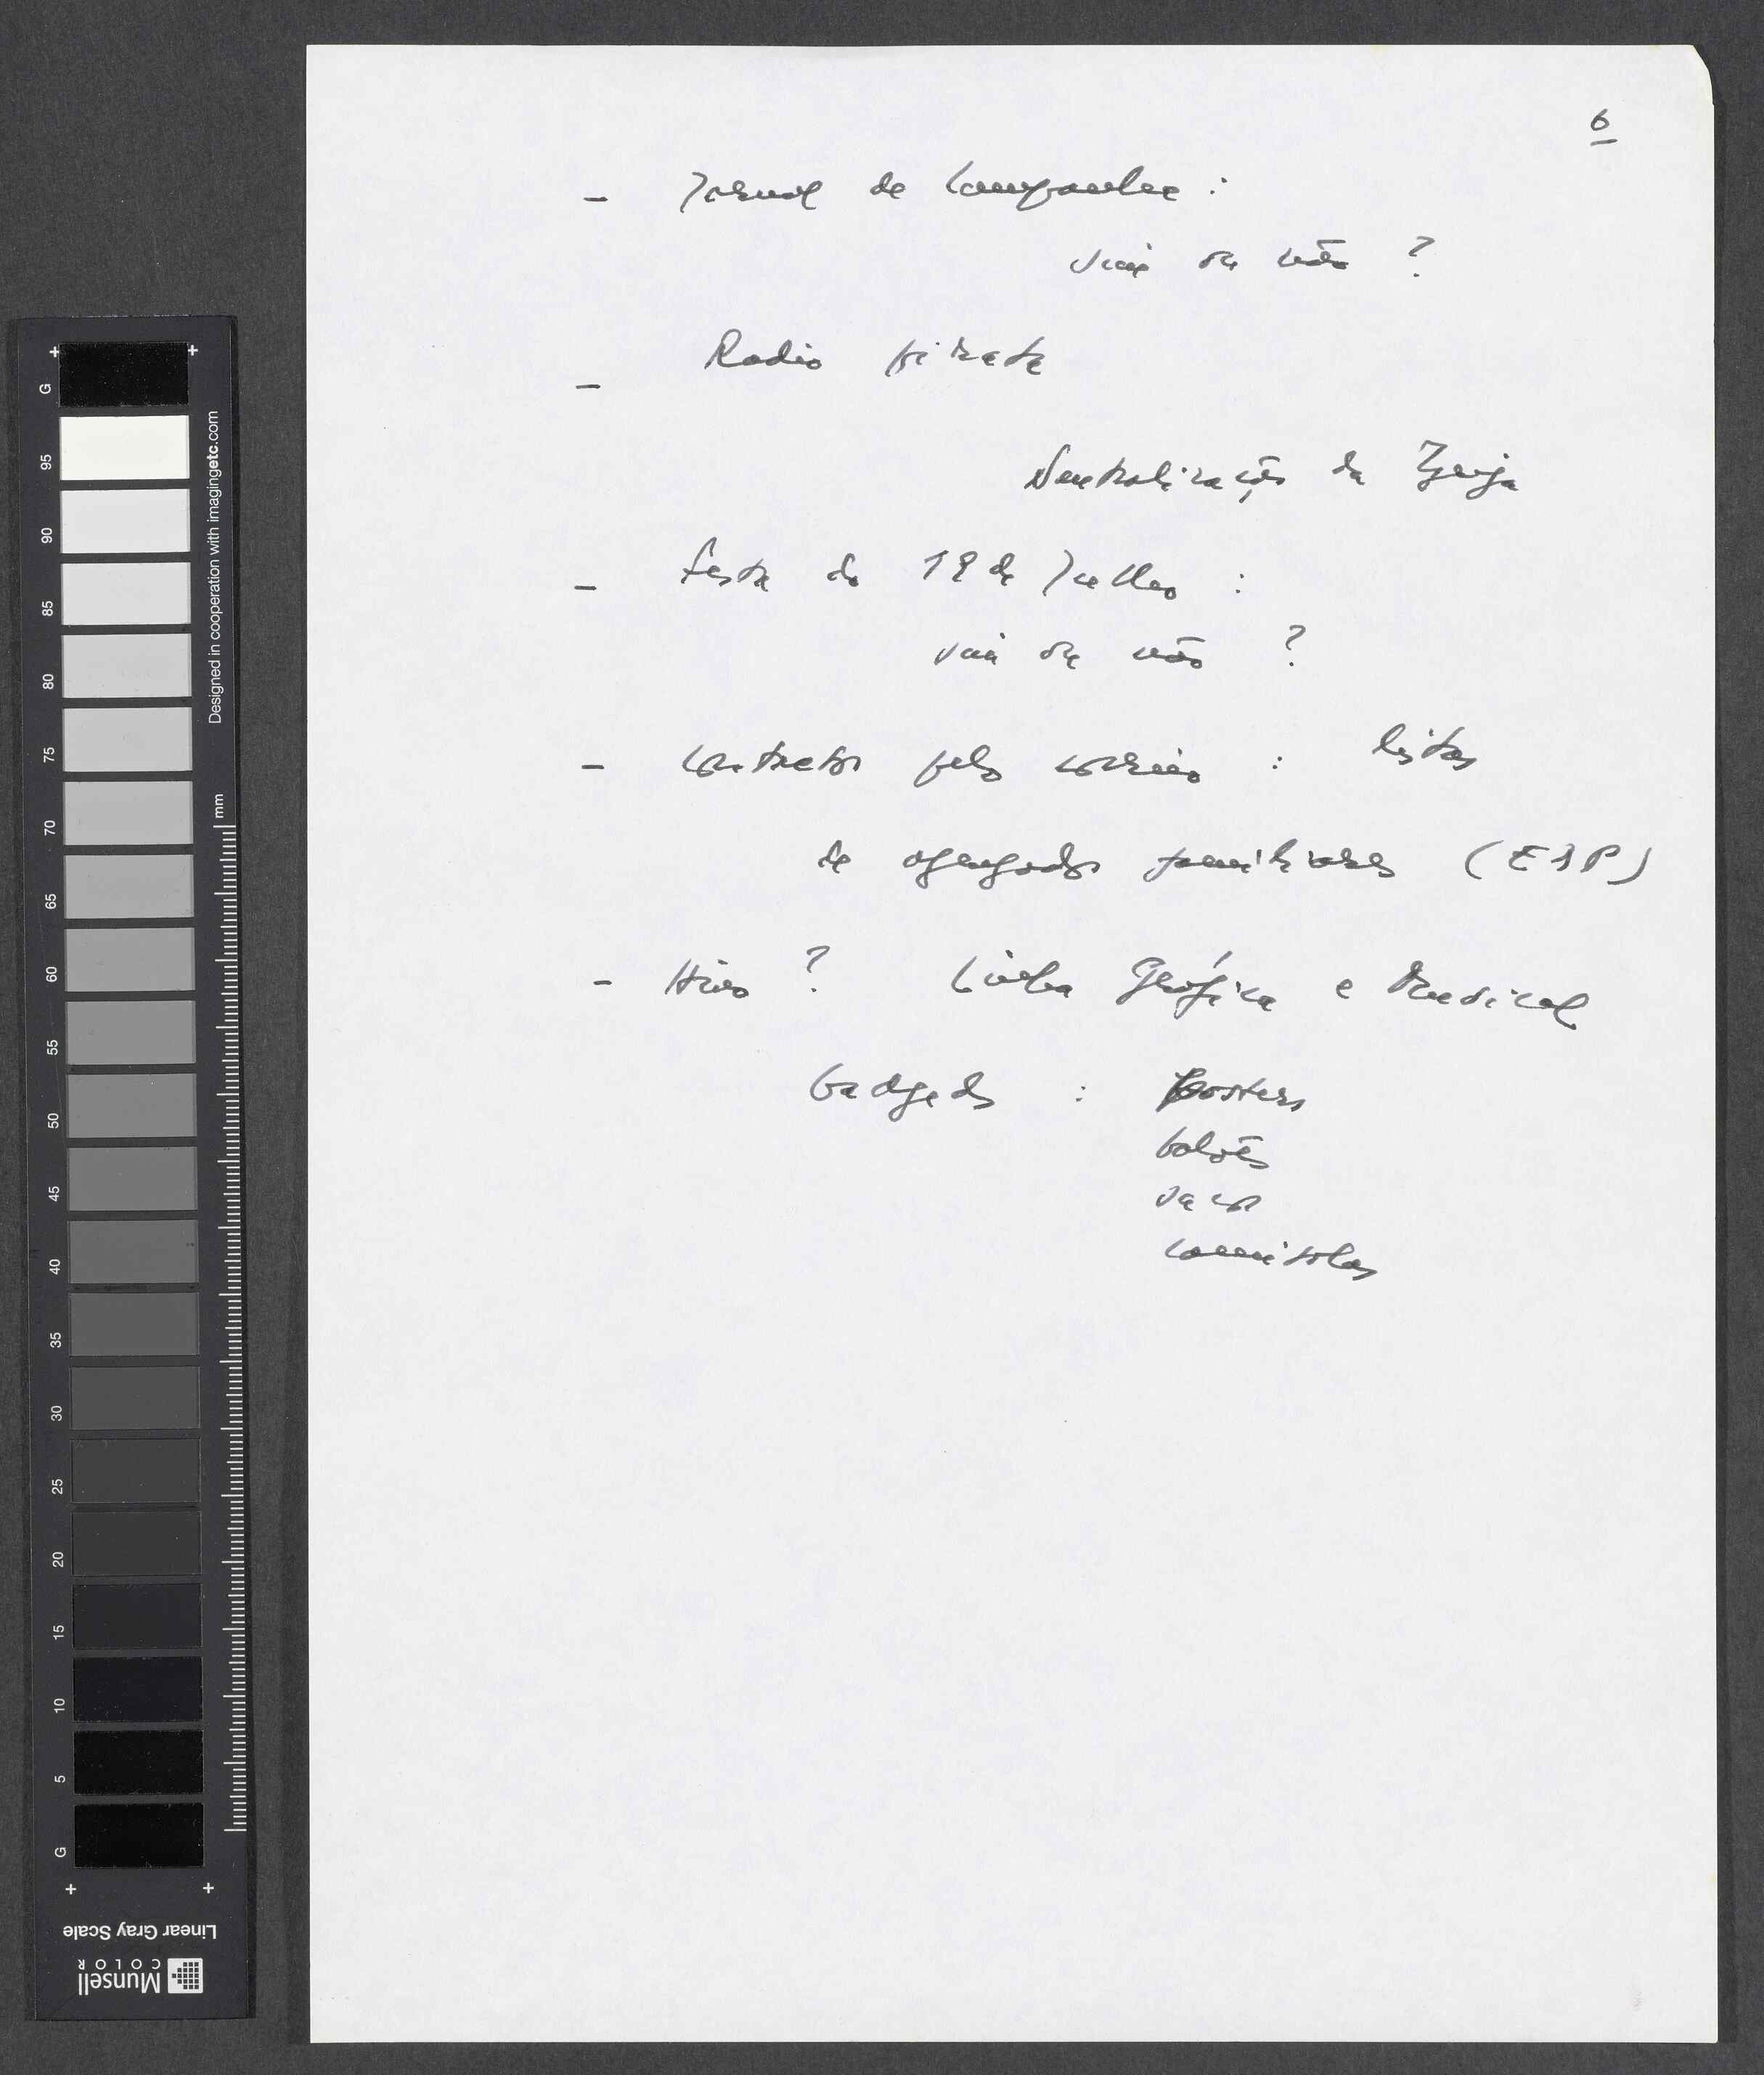 6
- Jornal de Campanha :
vai ou não ?
- Radio pirata
Neutralização da Igreja
- festa do 19 de Julho :
vai ou não ?
- contactos pelo correio : listas
de agregados familiares (
- Hino ? Linha Gráfica e Musical
Gadgeds : posters
balões
sacos
camisolas
G
95
90
85
80
75
70
65
60
55
50
45
40
35
30
25
20
15
10
5
G
Designed in cooperation with imagingetc.com
mm
Linear Gray Scale
Munsell
COLOR